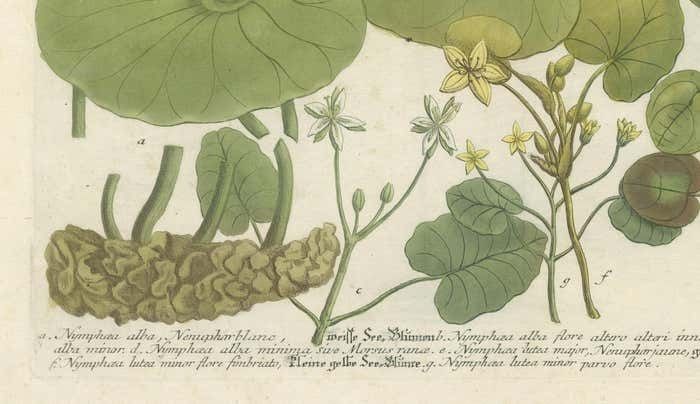 a
c
g
f
a. Nymphæa alba, Nenuphar blanc, weisse See, Blumen b. Nymphæa alba flore altero alteri inn
alba minor. d. Nymphæa alba minima sive Morsus ranæ. e. Nymphæa lutea major, Nenuphar jaune, g
f. Nymphæa lutea minor flore fimbriato, kleine gelbe See-Blume. g. Nymphæa lutea minor parvo flore.